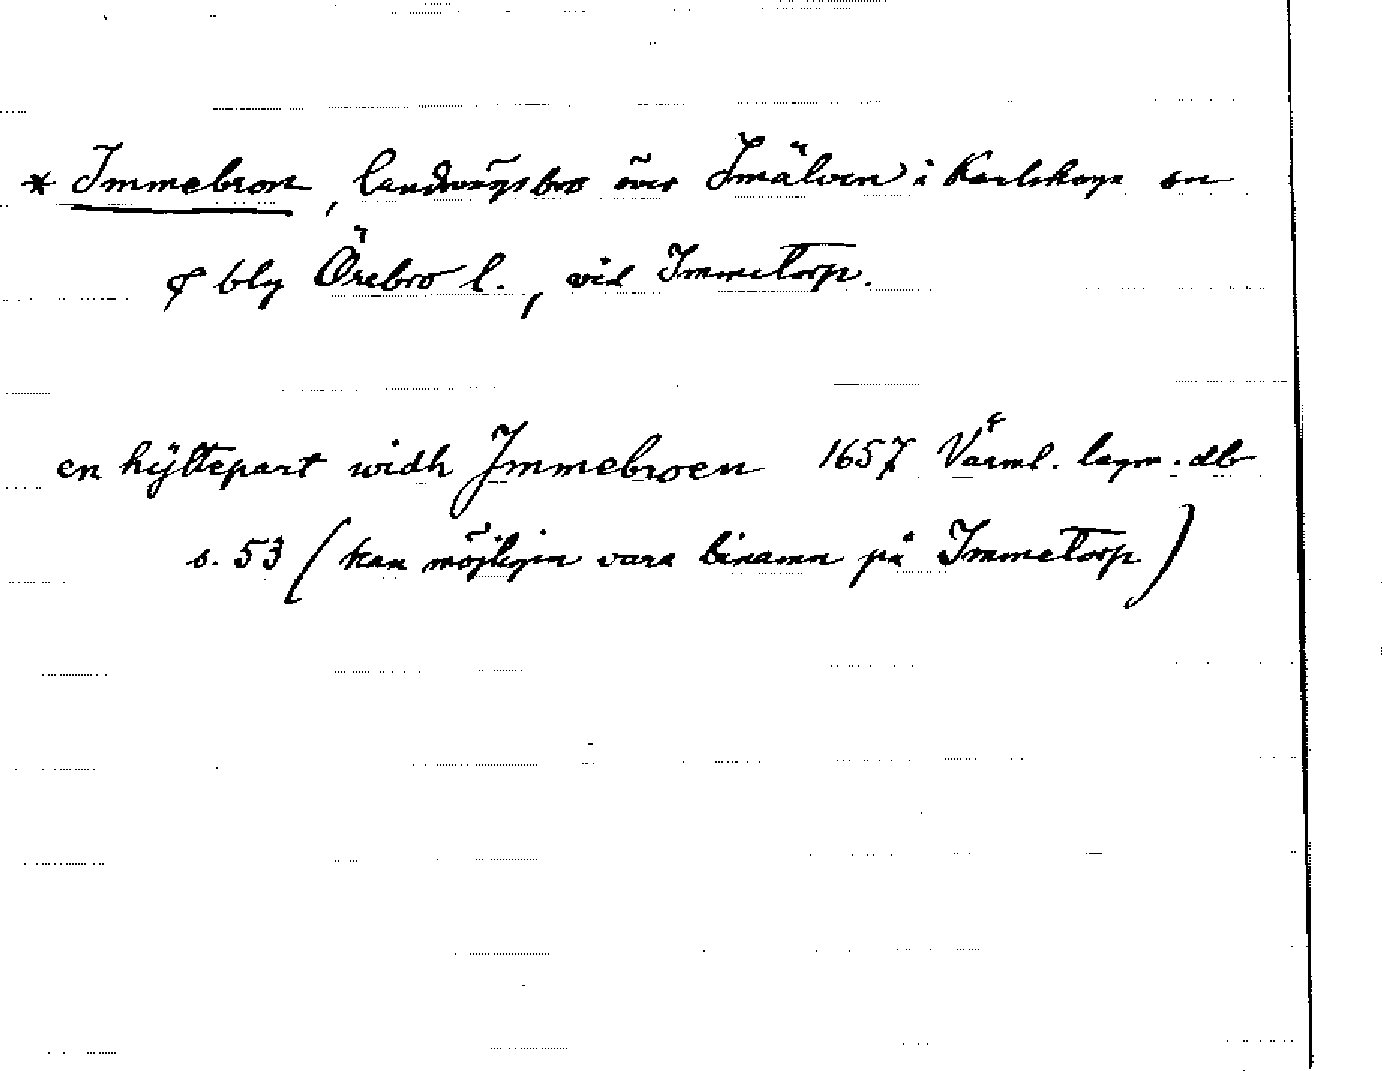 * Immebron, landsvägsbro över Imälven i Karlskoga sn
o bly Örebro l., vid Immetorp.
en hÿttepart widh Immebroen 1657 Värml. lagm. db
s. 53 (kan möjligen vara binamn på Immetorp)